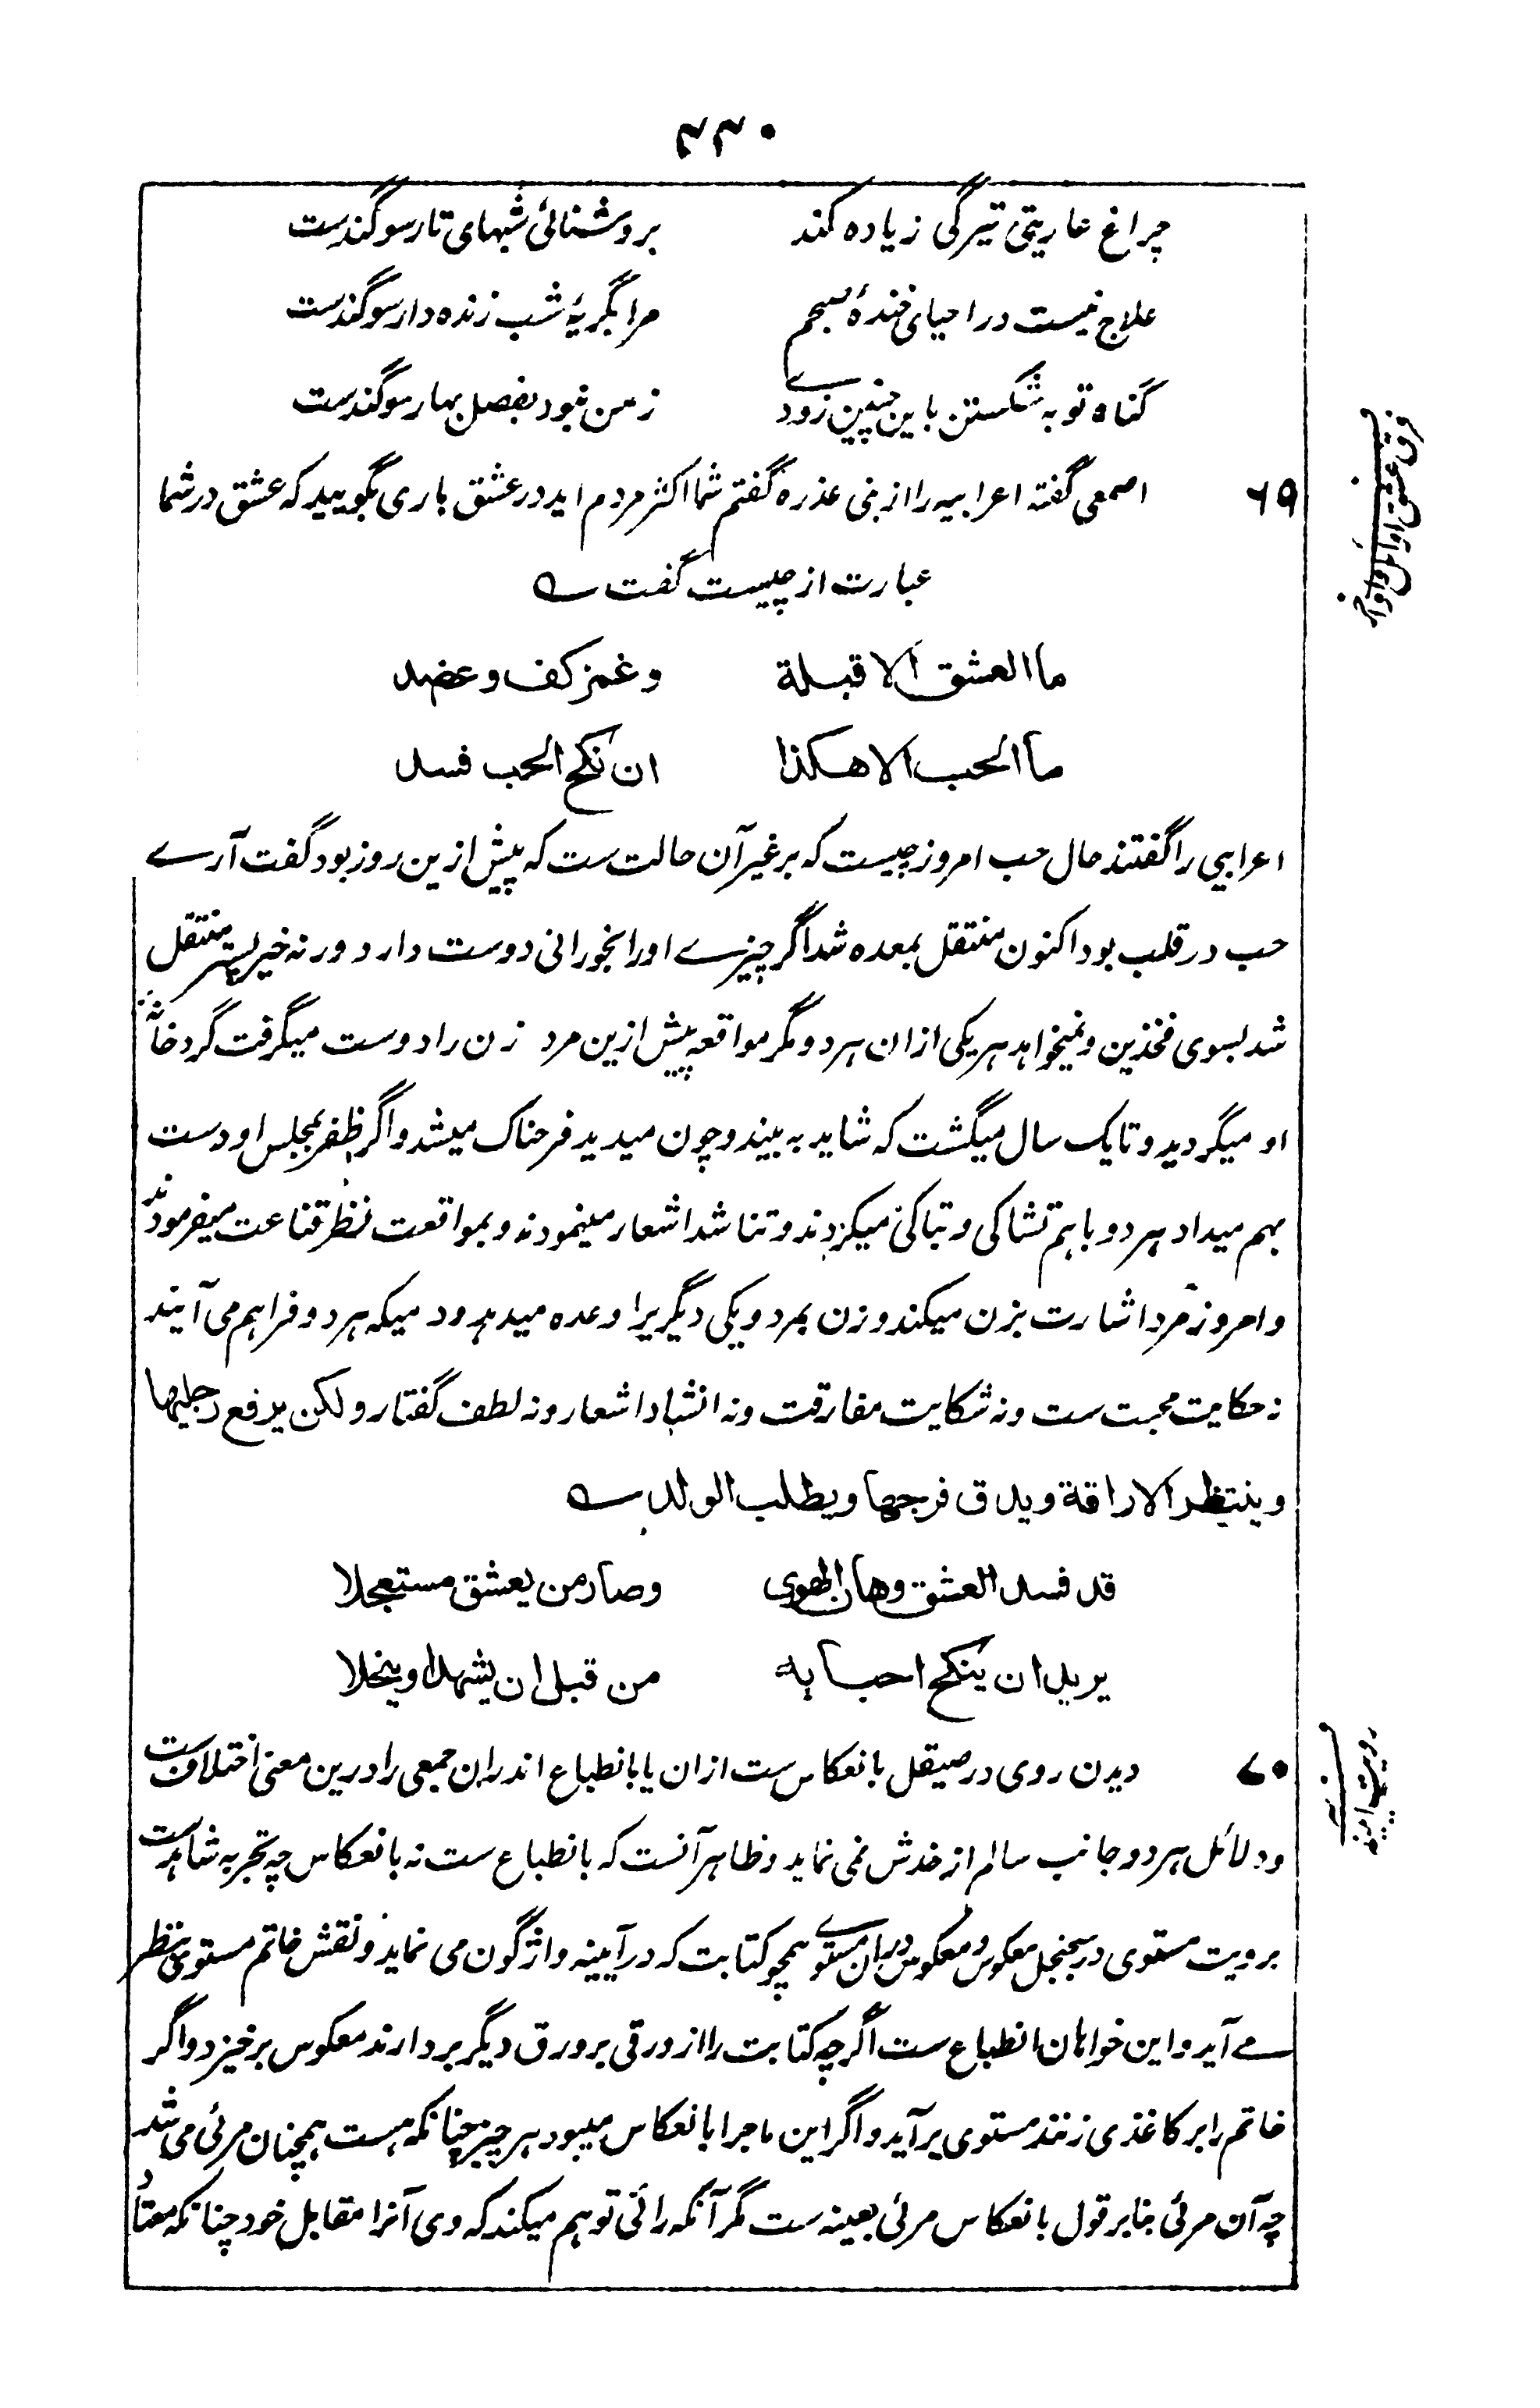 ۴۳۰
چراغ عاریتی تیرگی زیاده کند بروشنائی شبهای تار سوگندست
علاج نیست در احیای خندهٔ صبحم مرا بگریهٔ شب زنده دار سوگندست
گناه توبه شکستن باین چنین زودے ز من نبود بفصل بهار سوگندست
۶۹ اصمعی گفته اعرابیه را از بنی عذره گفتم شما اکثر مردم اید در عشق باری بگویید که عشق در شما
عبارت از چیست گفت
ما العشق الا قبلة وغمز کف وعضد
ما الحب الا هکذا ان نکح الحب فسد
اعرابی را گفتند حال حب امروز چیست که بر غیر آن حالت ست که پیش ازین روز بود گفت آرے
حب در قلب بود اکنون منتقل بمعده شد اگر چیزے اورا بخورانی دوست دارد ورنه خیر پستر منتقل
شد بسوی فخذین ونمیخواهد هر یکی ازان هر دو مگر مواقعه پیش ازین مرد زن را دوست میگرفت گرد خانهٔ
او میگردید و تا یک سال میگشت که شاید به بیند و چون میدید فرحناک میشد و اگر ظفر بمجلس او دست
بهم میداد هر دو باهم تشاکی و تباکی میکردند و تناشد اشعار مینمودند و بمواقعت نظر قناعت میفرمودند
و امروز مرد اشارت بزن میکند و زن بمرد و یکی دیگریرا وعده میدهد ودمیکه هر دو فراهم می آیند
نه حکایت محبت ست ونه شکایت مفارقت ونه انشاد اشعار ونه لطف گفتار ولکن یرفع رجلیها
وینتظر الاراقة ویدق فرجها ویطلب الولد
قد فسد العشق وهان الهوی وصار من یعشق مستعجلا
یرید ان ینکح احبابه من قبل ان یشهد او ینحلا
۷۰ دیدن روی در صیقل بانعکاس ست ازان یا بانطباع اندران جمعی را درین معنی اختلاف ست
ودلائل هر دو جانب سالم از خدش نمی نماید وظاهر آنست که بانطباع ست نه بانعکاس چه تجربه شاهدست
برویت مستوی در سجنجل معکوس و معکوس دران مستوے همچو کتابت که در آیینه واژگون می نماید ونقش خاتم مستوی بنظر
مے آید واین خواهان انطباع ست اگرچه کتابت را از ورقی بر ورق دیگر بردارند معکوس برخیزد واگر
خاتم را بر کاغذی زنند مستوی برآید واگر این ماجرا بانعکاس میبود هر چیز چنانکه هست همچنان مرئی می شد
چه آن مرئی بنابر قول بانعکاس مرئی بعینه ست مگر آنکه رائی توهم میکند که وی آنرا مقابل خود چنانکه معتاد
فرق عشق اوائل و اواخر